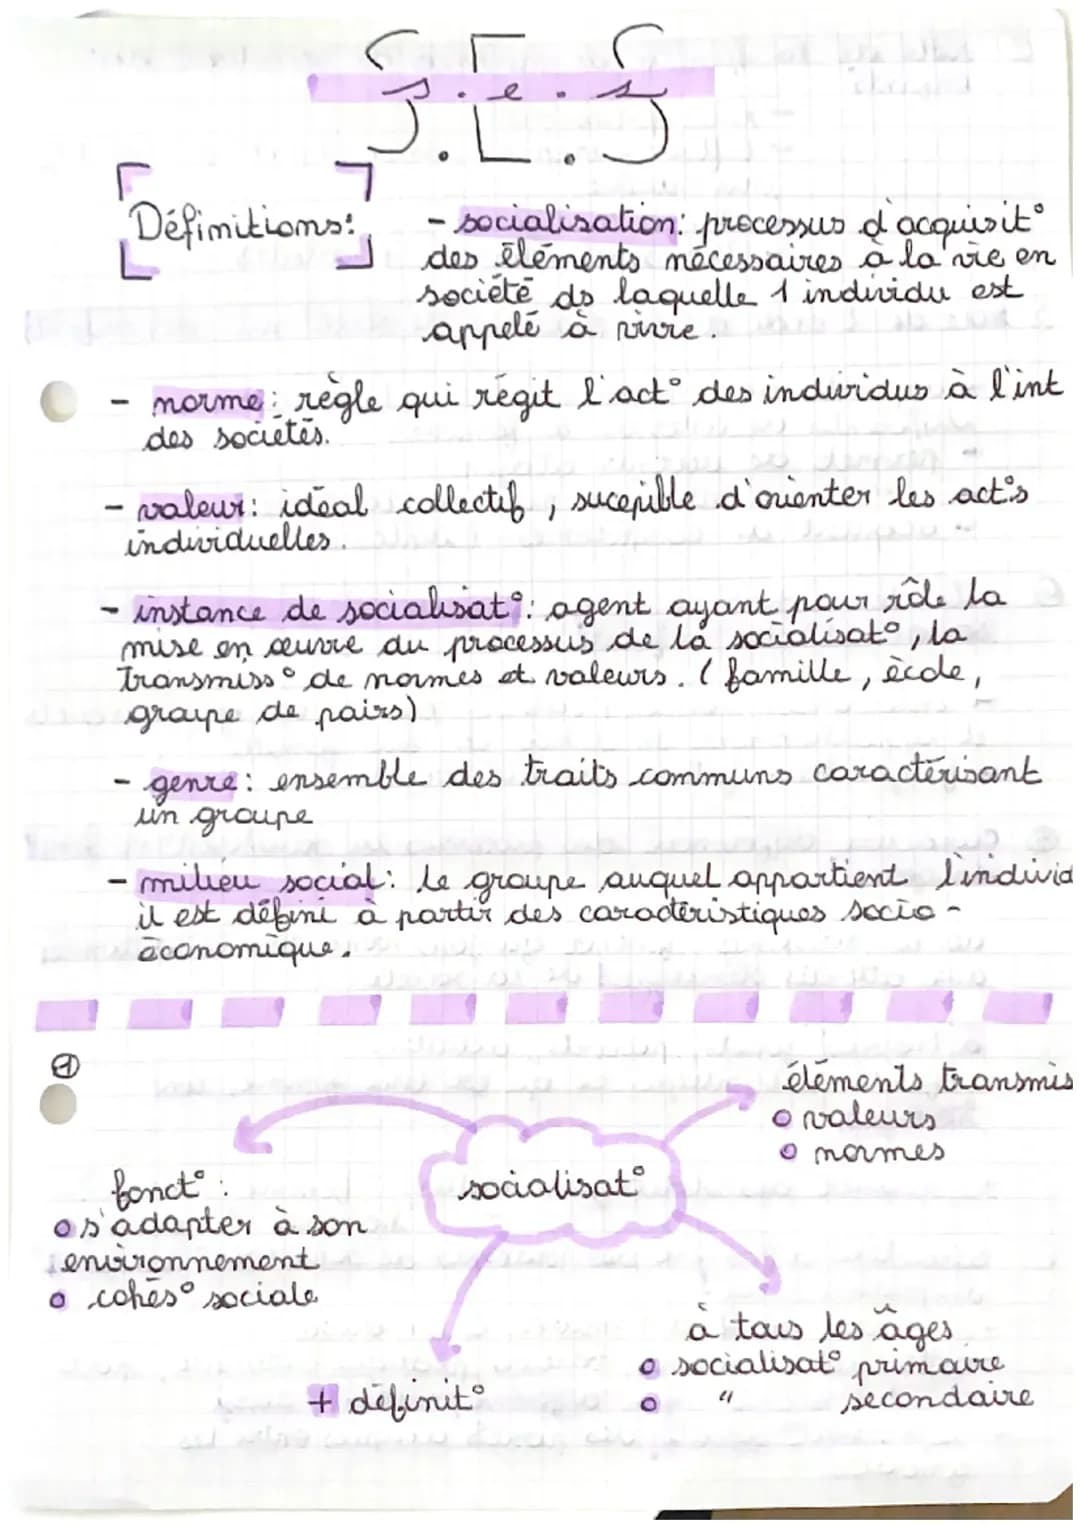 S.E.S
s.e.s
Définitions:
- socialisation: processus d'acquisit°
des éléments nécessaires à la vie en
société ds laquelle 1 individu est
appelé à vivre.
- norme: règle qui régit l'act° des individus à l'int
des sociétés.
- valeur: idéal collectif, sucepible d'orienter les act°s
individuelles.
- instance de socialisat°: agent ayant pour rôle la
mise en œuvre du processus de la socialisat°, la
transmiss° de normes et valeurs. (famille, école,
groupe de pairs)
- genre: ensemble des traits communs caractérisant
un groupe
- milieu social: le groupe auquel appartient l'individ
il est défini à partir des caractéristiques socio-
économique.
①
éléments transmis
o valeurs
o normes
socialisat°
fonct°:
o s'adapter à son
environnement
o cohés° sociale
à tous les âges
o socialisat° primaire
o " secondaire
+ définit°